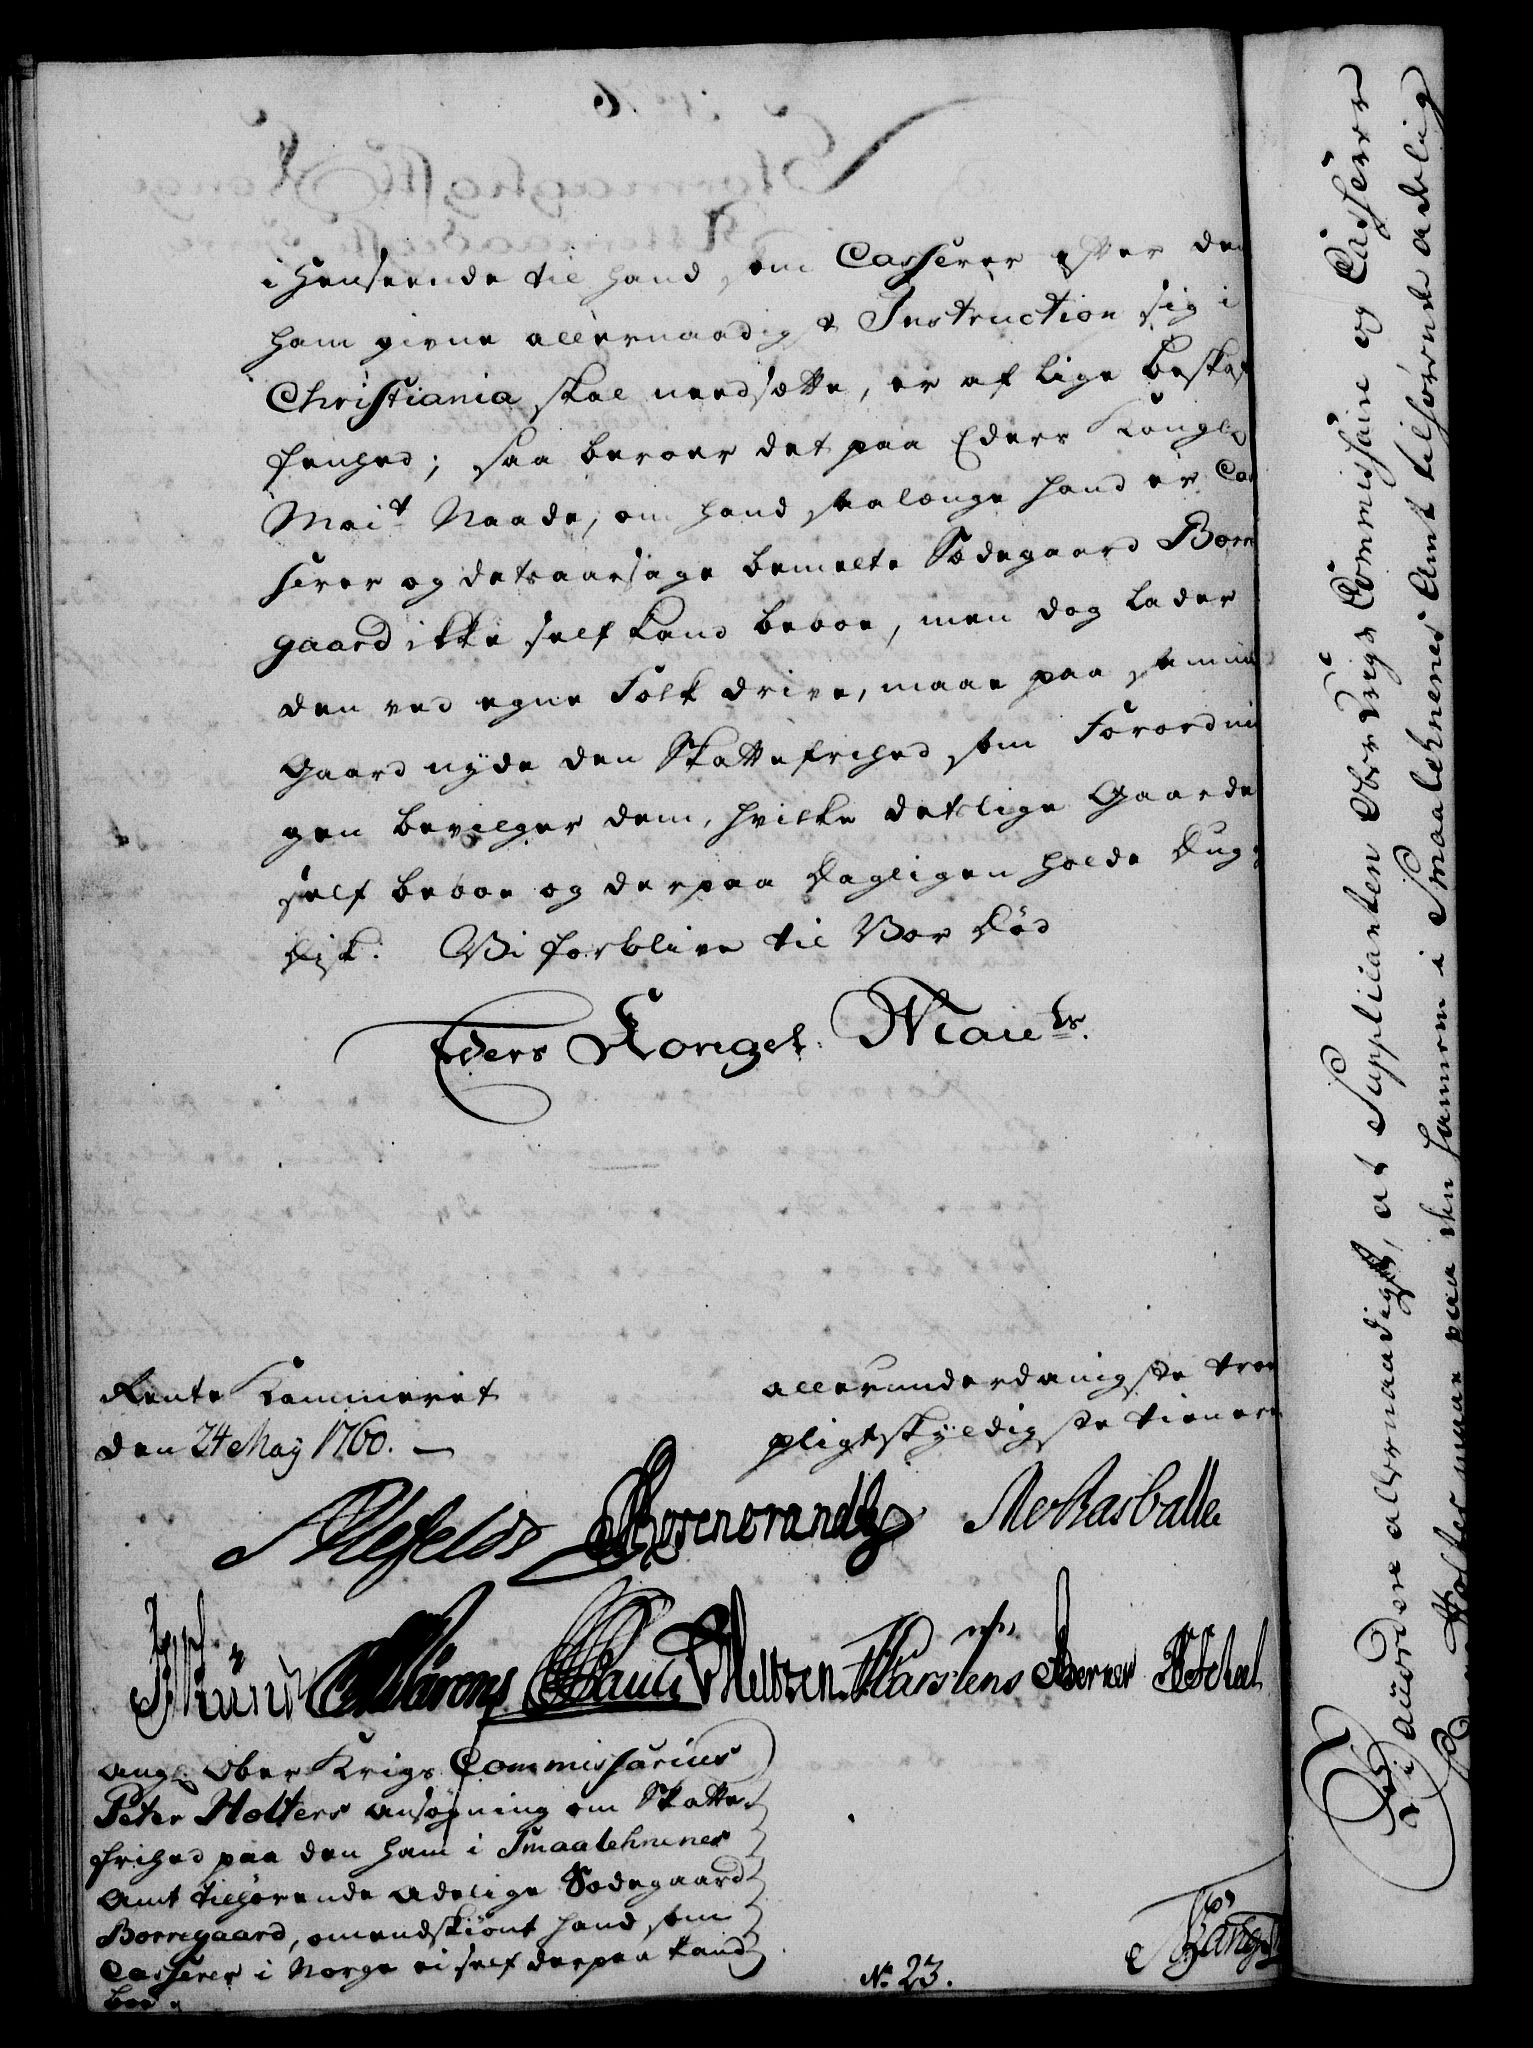 i Henseende til hand som Casserer efter den
ham givne allernaadigste Instruction sig i
Christiania skal needsætte, er af lige beskaf
fenhed; saa beroer det paa Eders Kongl.
Mait Naade, om hand saalænge hand er Cas
serer og detsaarsage bemelte Sædegaard Borre
gaard ikke self kand beboe, men dog lader
den ved egne Folk drive, maae paa samme
Gaard nyde den Skattefrihed som Forordnin
gen bevilger dem, hvilke deslige Gaarde
self beboe og derpaa dagligen holde Dug og
Disk. Vi forblive til Vor Død
Eders Kongel. Maits.
Rente Kammeret
den 24 May 1760.
allerunderdanigste troe
pligtskyldigste tienere
Alefeldt Rosencrandtz
Pauli Holtzen Karstens Berner Scheel
Ang. Ober Krigs Commissarius
Peter Holters ansøgning om Skatte
frihed paa den ham i Smaalehnenes
Amt tilhørende adelige Sædegaard
Borregaard, omendskiønt hand som
Casserer i Norge ei self derpaa kand
boe.
No 23.
Vi audere allernaadigst, at Supplicanten Ober Krigs Commissaire og Casserer
Peter Holter maae paa den hannem i Smaalehnenes Amt tilhørende adelig